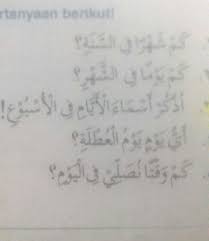 rtanyaan berikut!
كَمْ شَهْرًا فِي السَّنَةِ؟
كَمْ يَوْمًا فِي الشَّهْرِ؟
اُذْكُرْ أَسْمَاءَ الْأَيَّامِ فِي الْأُسْبُوْعِ!
أَيُّ يَوْمٍ يَوْمُ الْعُطْلَةِ؟
كَمْ وَقْتًا نُصَلِّيْ فِي الْيَوْمِ؟